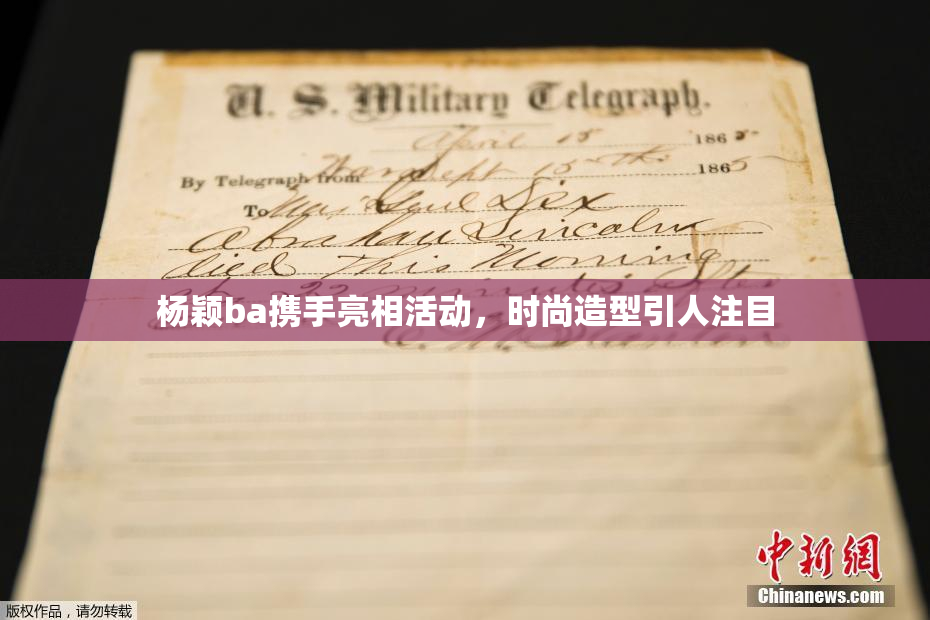 U. S. Military Telegraph.
April 15 1865
By Telegraph from War Dept 15th 1865
To Maj Genl Dix
Abraham Lincoln
died This Morning
at 22 minutes after
杨颖ba携手亮相活动，时尚造型引人注目
E. M. Stanton
中新网
Chinanews.com
版权作品，请勿转载